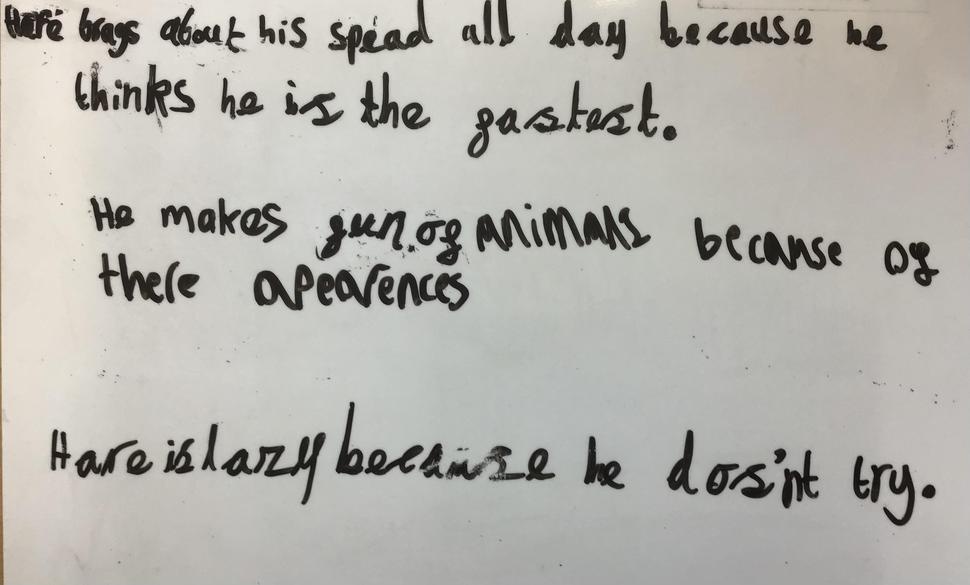 Hare brags about his spead all day because he
thinks he is the fastest.
He makes fun of animals because of
there apearences
Hare is lazy because he dos'nt try.